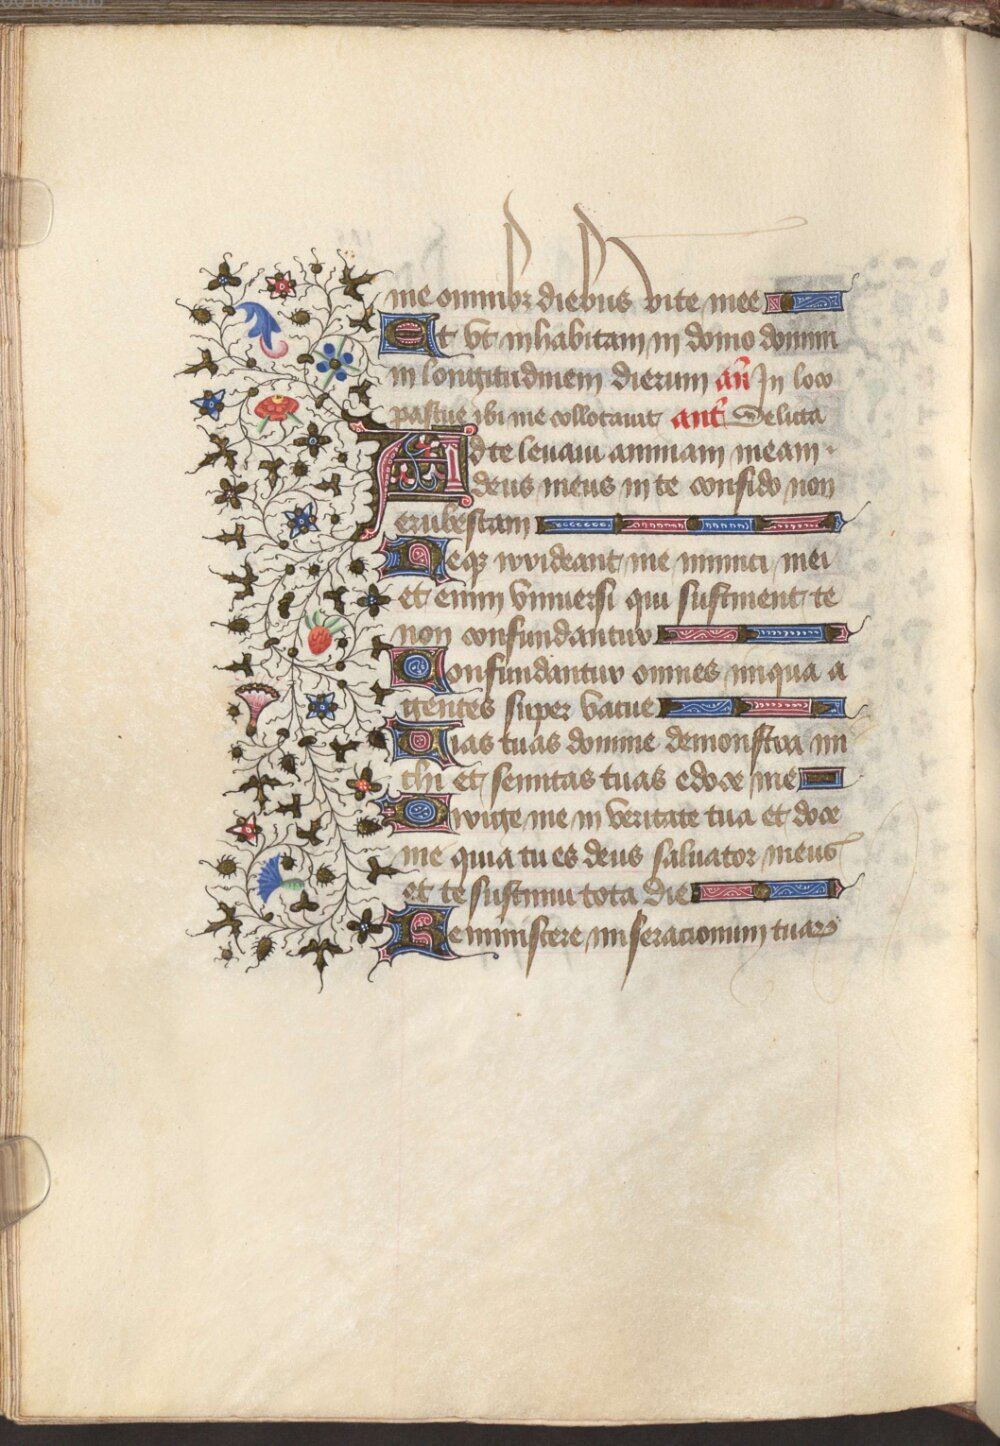 me omnibz diebus vite mee
Et vt inhabitam in domo domini
in longitudinem dierum an̄ In loco
pascue ibi me collocauit ant̄ Delicta
Ad te leuaui animam meam
deus meus in te confido non
erubescam
Neqz irrideant me inimici mei
et enim vniuersi qui sustinent te
non confundantur
Confundantur omnes iniqua a
gentes super vacue
Uias tuas domine demonstra mi
chi et semitas tuas edoce me
Dirige me in veritate tua et doce
me quia tu es deus saluator meus
et te sustinui tota die
Reminiscere miseracionum tuarꝫ